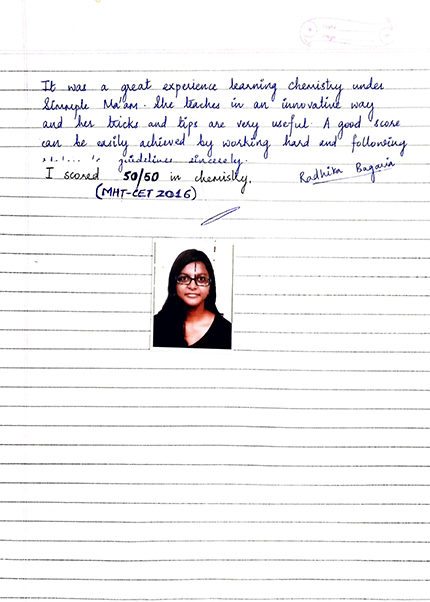 It was a great experience learning chemistry under
Simmple Ma'am. She teaches in an innovative way
and her tricks and tips are very useful. A good score
can be easily achieved by working hard and following
guidelines sincerely.
I scored 50/50 in chemistry. Radhika Bagaria
(MHT-CET 2016)